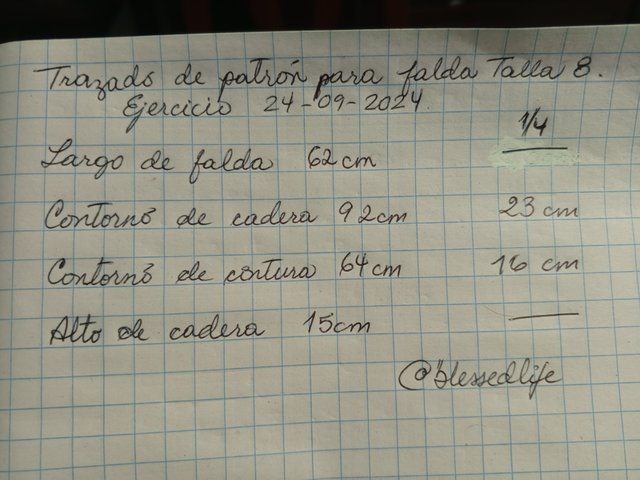 Trazado de patrón para falda Talla 8.
Ejercicio 24-09-2024.
1/4
Largo de falda 62cm
Contorno de cadera 92cm 23 cm
Contorno de cintura 64cm 16 cm
Alto de cadera 15cm
@blessedlife